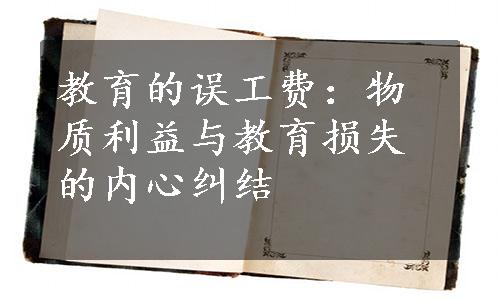 教育的误工费：物
质利益与教育损失
的内心纠结